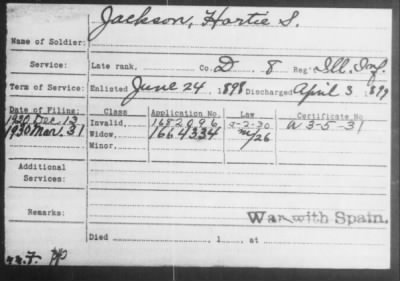 Jackson, Hortie S.
Name of Soldier:
Service: Late rank, Co. D 8 Reg't Ill. Inf.
Term of Service: Enlisted June 24 1898 Discharged April 3 1899
Date of Filing: Class Application No. Law Certificate No.
1930 Dec. 13 Invalid, 1682096 5-2-30 W 3-5-31
1930 Mar. 31 Widow, 1664334 m/26
Minor,
Additional
Services:
Remarks: War with Spain.
Died , 1 , at